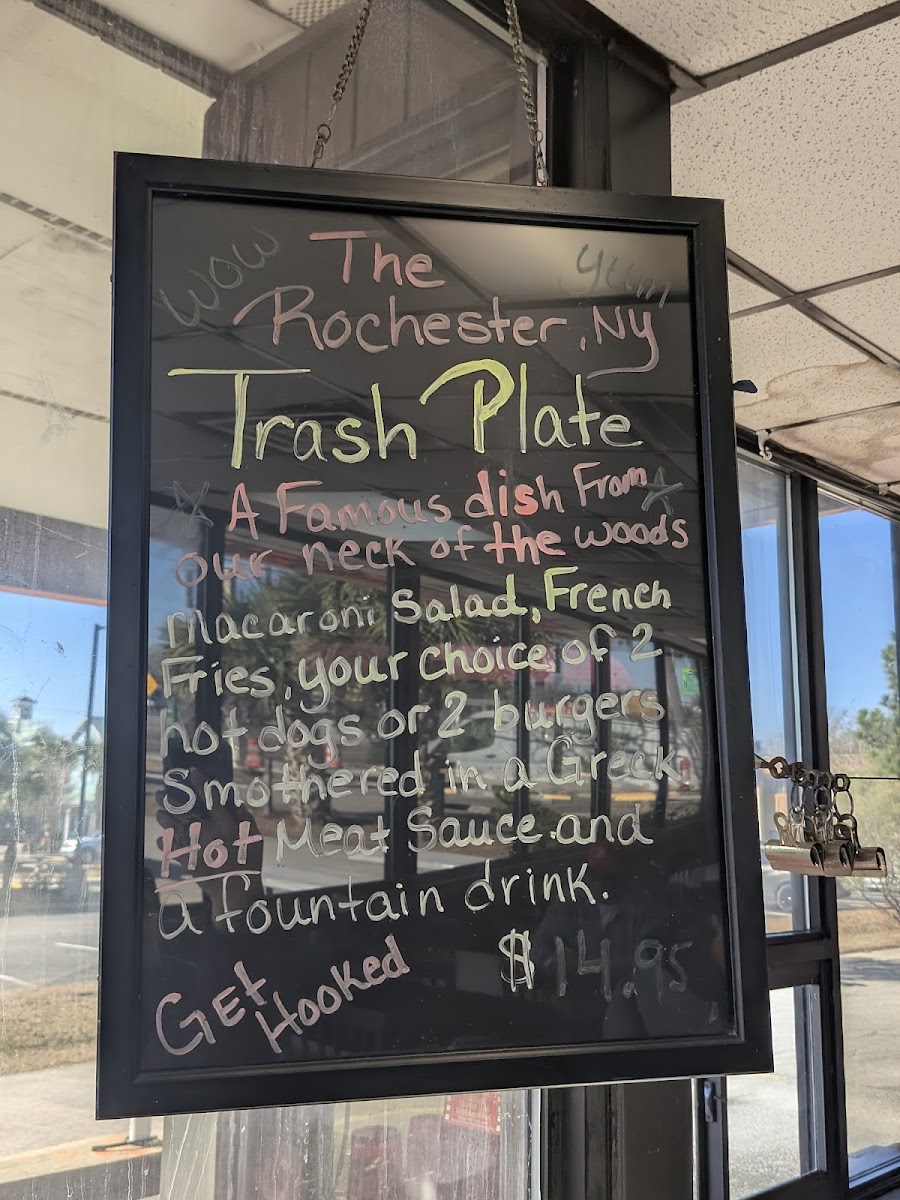 Wow
The
Yum
Rochester, NY
Trash Plate
A Famous dish From
our neck of the woods
Macaroni Salad, French
Fries, your choice of 2
hot dogs or 2 burgers
Smothered in a Greek
Hot Meat Sauce and
a fountain drink.
Get
Hooked
$14.95